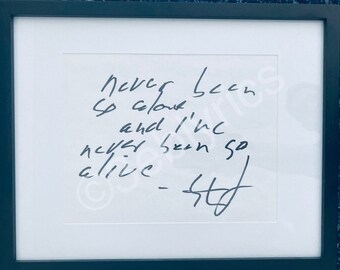 never been
so alone
and i've
never been so
alive